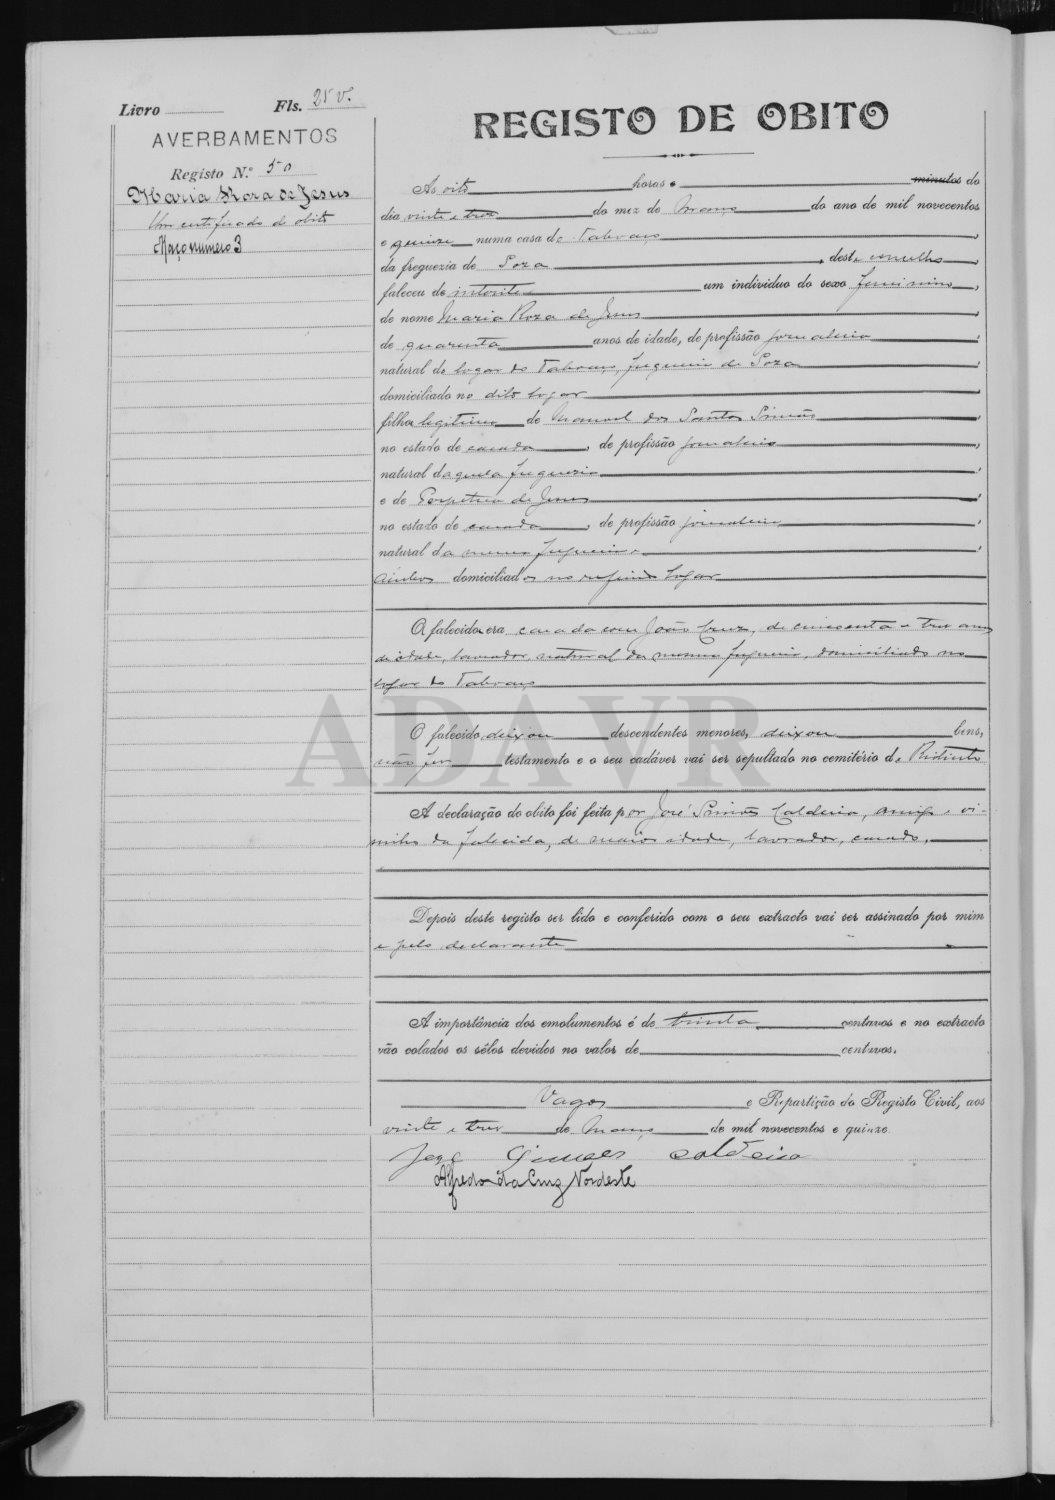 Livro Fls. 25 v.
AVERBAMENTOS
Registo N.º 50
Maria Rosa de Jesus
Um certificado de obito
Maço numero 3
REGISTO DE OBITO
As oito horas e minutos do
dia vinte e tres do mez de Março do ano de mil novecentos
e quinze numa casa de Tabuaço
da freguezia de Soza, deste concelho,
faleceu de enterite um individuo do sexo femenino,
de nome Maria Roza de Jesus,
de quarenta anos de idade, de profissão jornaleira,
natural do logar de Tabuaço, freguezia de Soza,
domiciliado no dito logar,
filha legitima de Manuel dos Santos Simão,
no estado de casado, de profissão jornaleiro,
natural daquela freguezia,
e de Perpetua de Jesus,
no estado de casada, de profissão jornaleira,
natural da mesma freguezia,
ambos domiciliados no referido logar
A falecida era casada com João Cruz, de cincoenta e tres anos
de idade, lavrador, natural da mesma freguezia, domiciliado no
logar de Tabuaço
O falecido deixou descendentes menores, deixou bens,
não fez testamento e o seu cadáver vai ser sepultado no cemitério de
A declaração do obito foi feita por José Simões Caldeira, amigo e vi-
sinho da falecida, de maior idade, lavrador, casado.
Depois deste registo ser lido e conferido com o seu extracto vai ser assinado por mim
e pelo declarante
A importância dos emolumentos é de trinta centavos e no extracto
vão colados os sêlos devidos no valor de centavos.
Vagos e Repartição do Registo Civil, aos
vinte e tres de Março de mil novecentos e quinze.
José Simões Caldeira
Alfredo da Cruz Nordeste
ADAVR